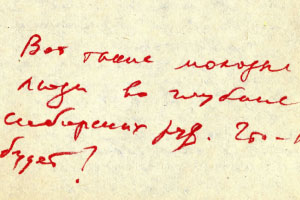 Вот такие молодые
люди во глубине
сибирских руд. Что-то
будет?